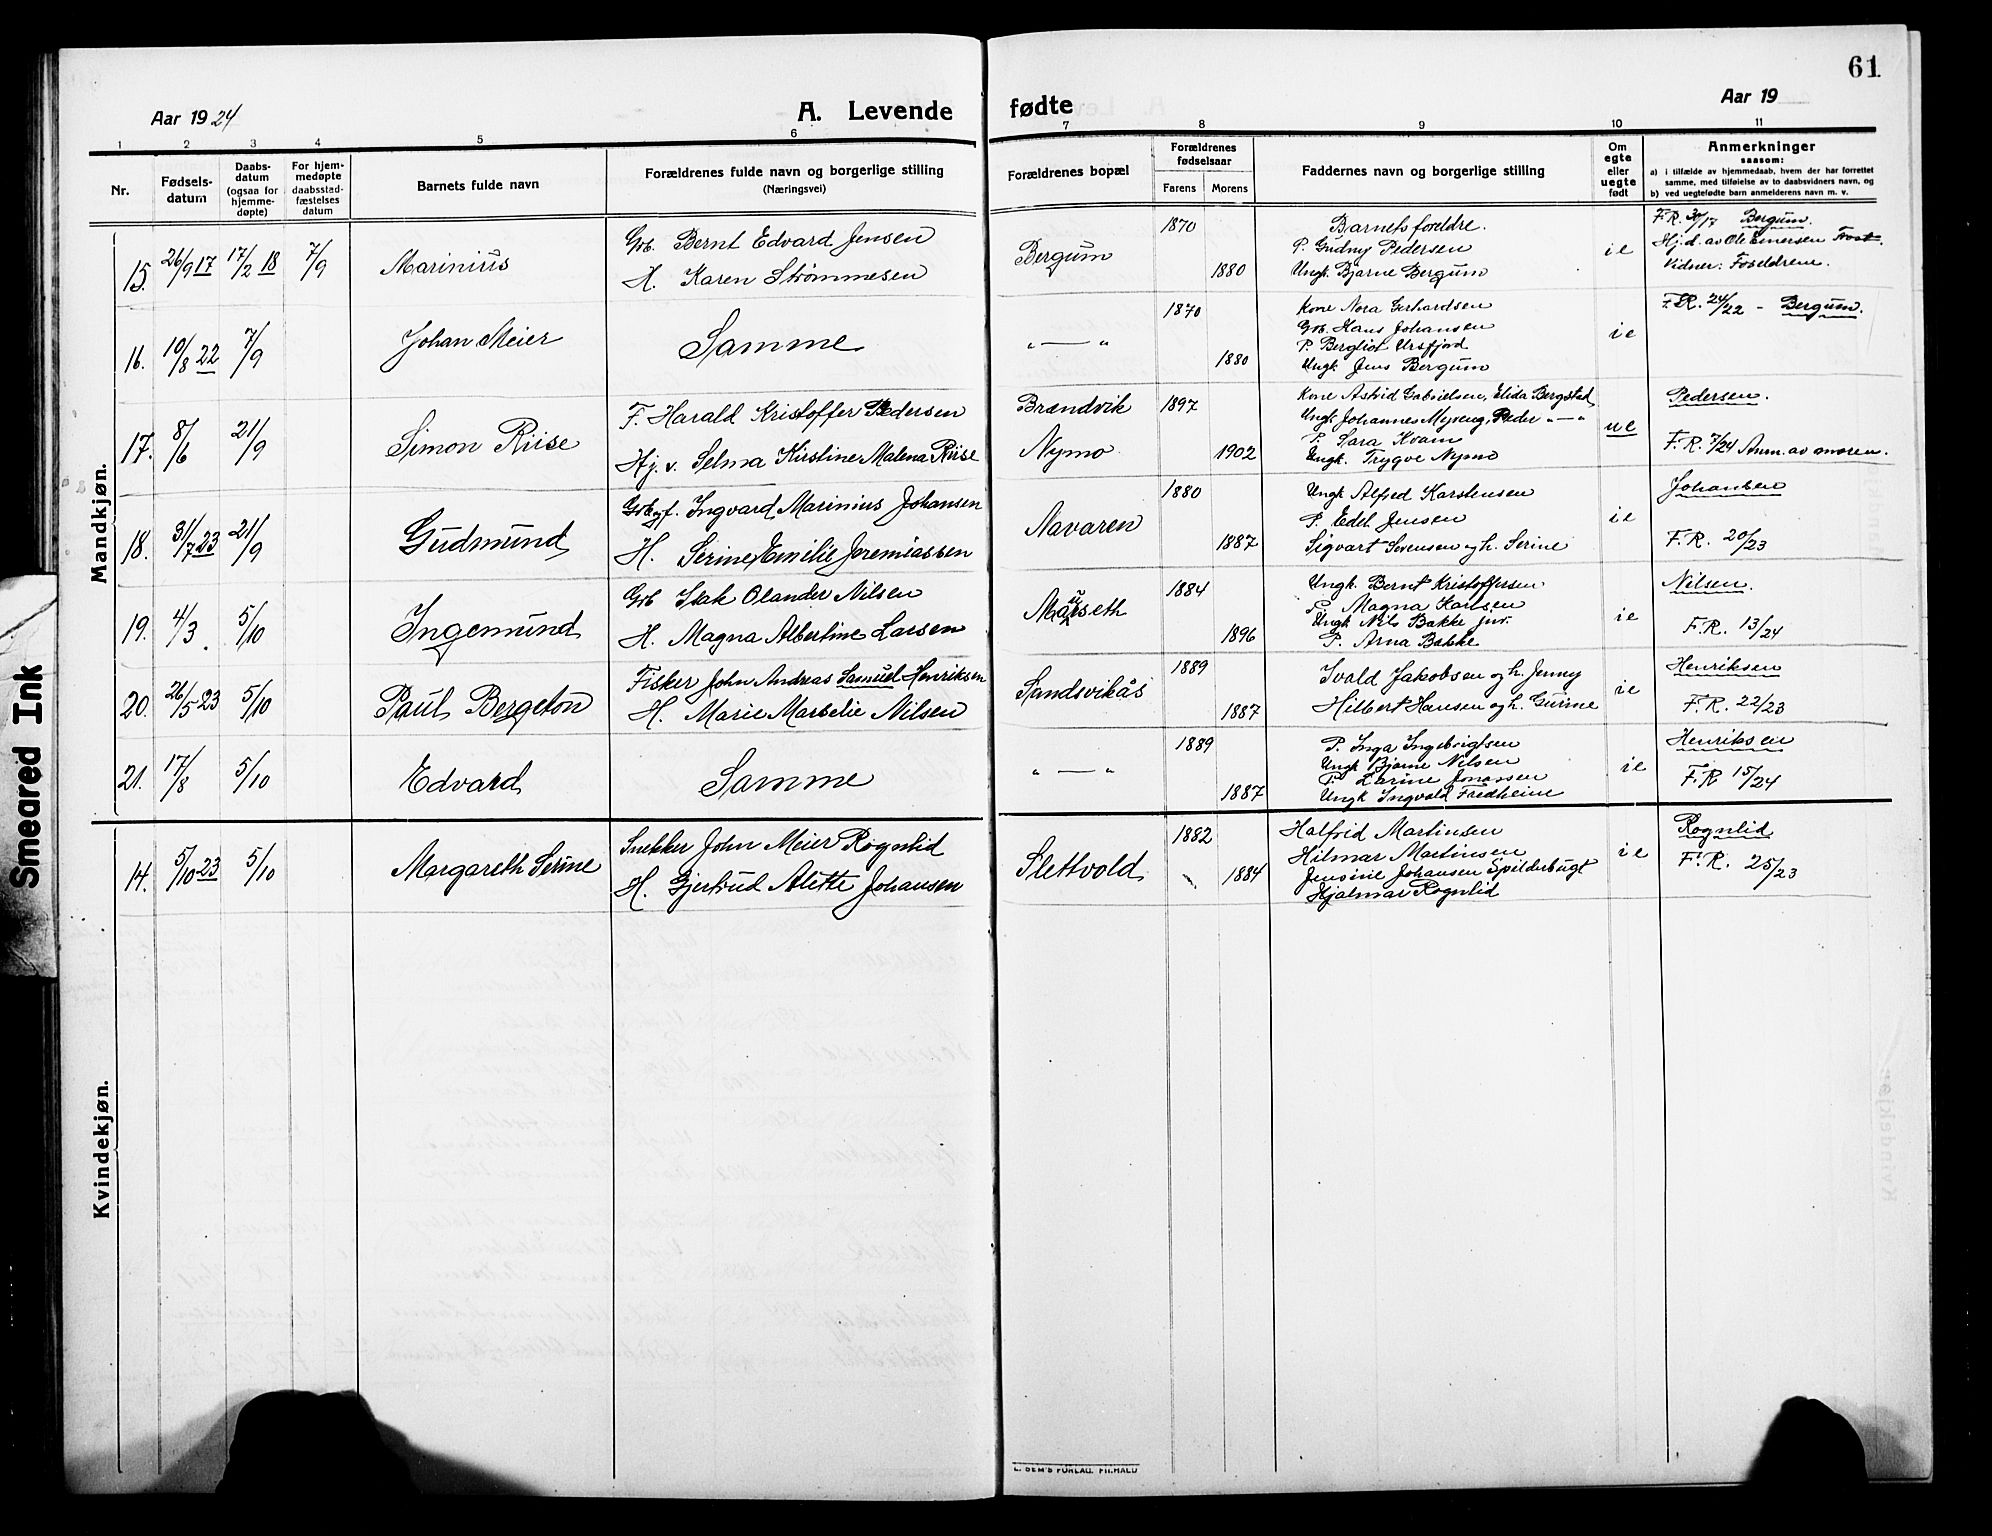 61
Aar 1924
A. Levende
fødte
Aar 19
1 2 3 4 5 6 7 8 9 10 11
Nr.
Fødsels-
datum
Daabs-
datum
(ogsaa for
hjemme-
døpte)
For hjem-
medøpte
daabsstad-
fæstelses
datum
Barnets fulde navn
Forældrenes fulde navn og borgerlige stilling
(Næringsvei)
Forældrenes bopæl
Forældrenes
fødselsaar
Farens Morens
Faddernes navn og borgerlige stilling
Om
egte
eller
uegte
født
Anmerkninger
saasom:
a) i tilfælde av hjemmedaab, hvem der har forrettet
samme, med tilføielse av to daabsvidners navn, og
b) ved uegtefødte barn anmelderens navn m. v.
Mandkjøn.
15. 26/9 17 17/2 18 7/9 Marinius
Grb. Bernt Edvard Jensen
H. Karen Strømmesen
Bergum
1870
1880
Barnets foreldre.
P. Gudny Pedersen
Ungk. Bjarne Bergum
ie
F.R. 30/17 Bergum.
Hj.d. av Ole Einersen
Vidner: Foreldrene.
16. 10/8 22 7/9 Johan Meier
Samme
" — "
1870
1880
Kone Nora Gerhardsen
Grb. Hans Johansen
P. Bergliot Ursfjord
Ungk. Jens Bergum
ie
F.R. 24/22 - Bergum.
17. 8/6 21/9 Simon Riise
F. Harald Kristoffer Pedersen
Hj. v. Selma Kirstine Malena Riise
Brændvik
Nymo
1897
1902
Kone Astrid Gabrielsen, Elida Bergstad
Ungk. Johannes Myreng, Peder " — "
P. Sara Kvam
Ungk. Trygve Nymo
ue
Pedersen.
F.R. 7/24 Anm. av moren.
18. 31/7 23 21/9 Gudmund
Ingvard Marinius Johansen
H. Serine Emilie Jeremiassen
Navaren
1880
1887
Ungk Alfred Karstensen
P. Edel Jensen
Sigvart Sørensen og h. Serine
ie
Johansen
F.R. 20/23
19. 4/3 5/10 Ingemund
Grb Isak Olander Nilsen
H. Magna Albertine Larsen
1884
1896
Ungk. Bernt Kristoffersen
P. Magna Karlsen
Ungk Nils Bakke jnr.
P. Arna Bakke
ie
Nilsen.
F.R. 13/24
20. 26/5 23 5/10 Paul Bergeton
Fisker John Andreas Samuel Henriksen
H. Marie Marselie Nilsen
Sandsvikås
1889
1887
Ivald Jakobsen og h. Jenny
Hilbert Hansen og h. Gurine
ie
Henriksen
F.R. 22/23
21. 17/8 5/10 Edvard
Samme
" — "
1889
1887
P. Inga Ingebrigtsen
Ungk Bjarne Nilsen
P. Larine Jonassen
Ungk Ingvald Fredheim
ie
Henriksen
F.R 15/24
Kvindekjøn.
14. 5/10 23 5/10 Margareth Serine
Snekker John Meier Rognlid
H. Gjertrud Alette Johansen
Slettvold
1882
1884
Halfrid Martinsen
Hilmar Martinsen
Jensine Johansen Spilderbugt
Hjalmar Rognlid
ie
Rognlid
F.R. 25/23
Smeared Ink
E. SEM'S FORLAG, FR.HALD